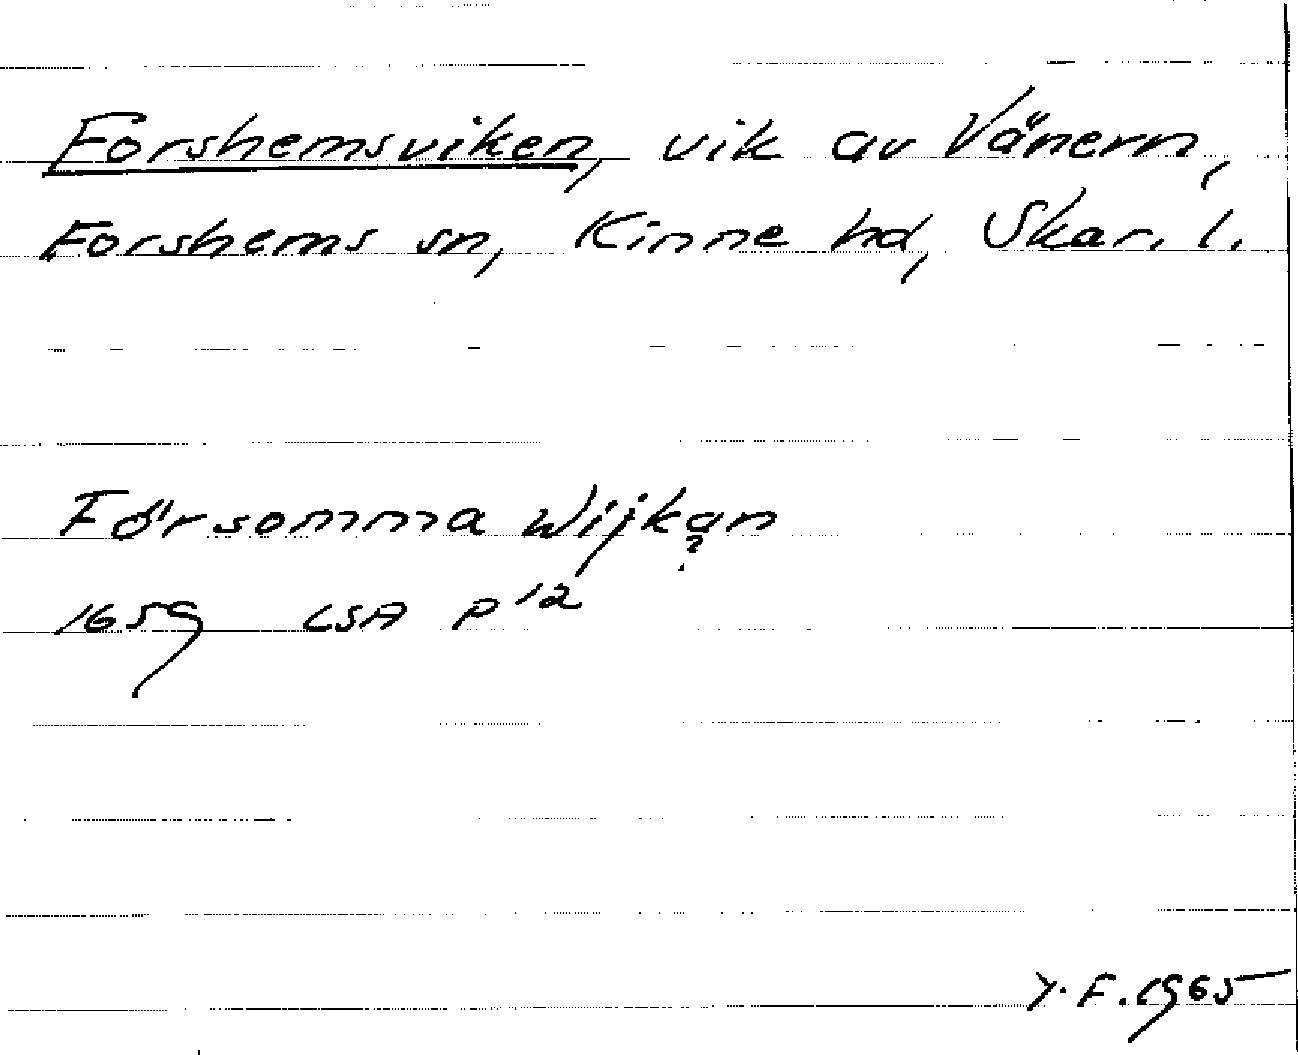 Forshemsviken, vik av Vänern,
Forshems sn, Kinne hd, Skar. l.
Försomma Wijkan
?
1659 LSA P 12
Y. F. 1965